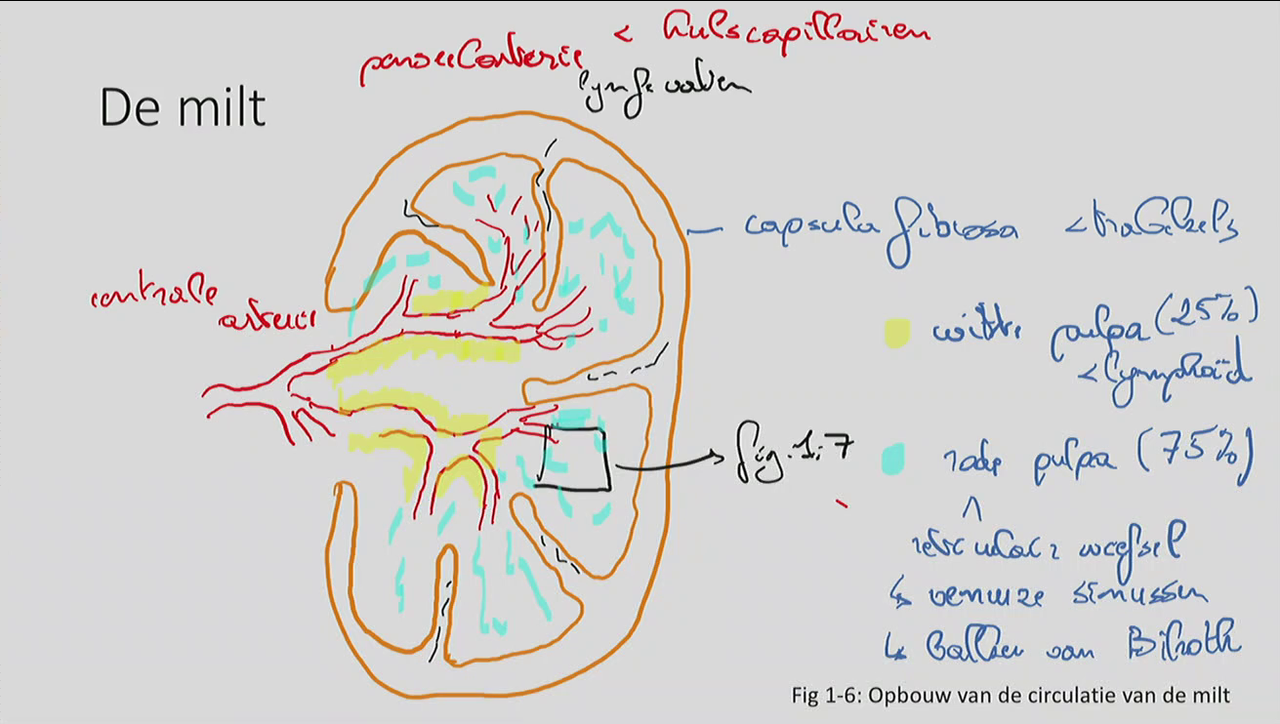 < hulscapillairen
penseelarterie
lymfevaten
De milt
capsula fibrosa < trabikels
centrale
arterie
witte pulpa (25%)
< lymphoïd
fig. 1.7
rode pulpa (75%)
^
reticulair weefsel
↳ veneuze sinussen
↳ Balken van Bilroth
Fig 1-6: Opbouw van de circulatie van de milt